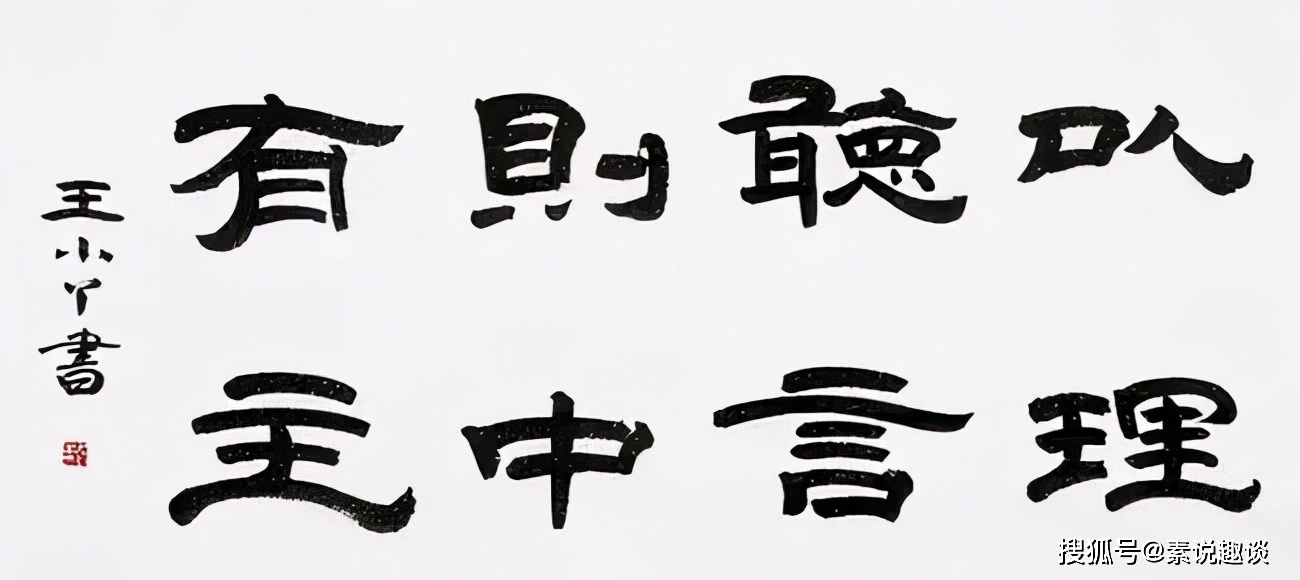 以理
聽言
則中
有主
王小丫書
搜狐号@素说趣谈